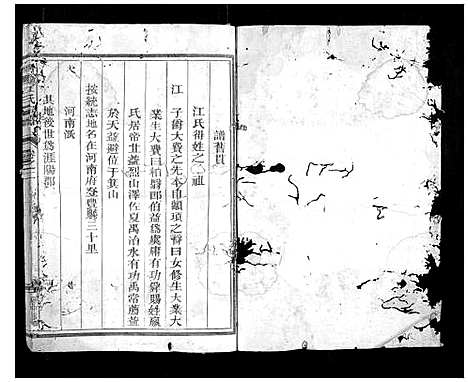 譜舊貫
江氏得姓之一祖
江 子爵大費之先 帝顓頊之裔曰女修生大業大
業生大費曰柏翳即伯益為虞庸有功舜賜姓嬴
氏居常 益烈山澤佐夏禹治水有功禹常薦益
於天益避位于箕山
按統志地名在河南府登豐縣三十里
河南派
其地後世為淮陽郡
江氏